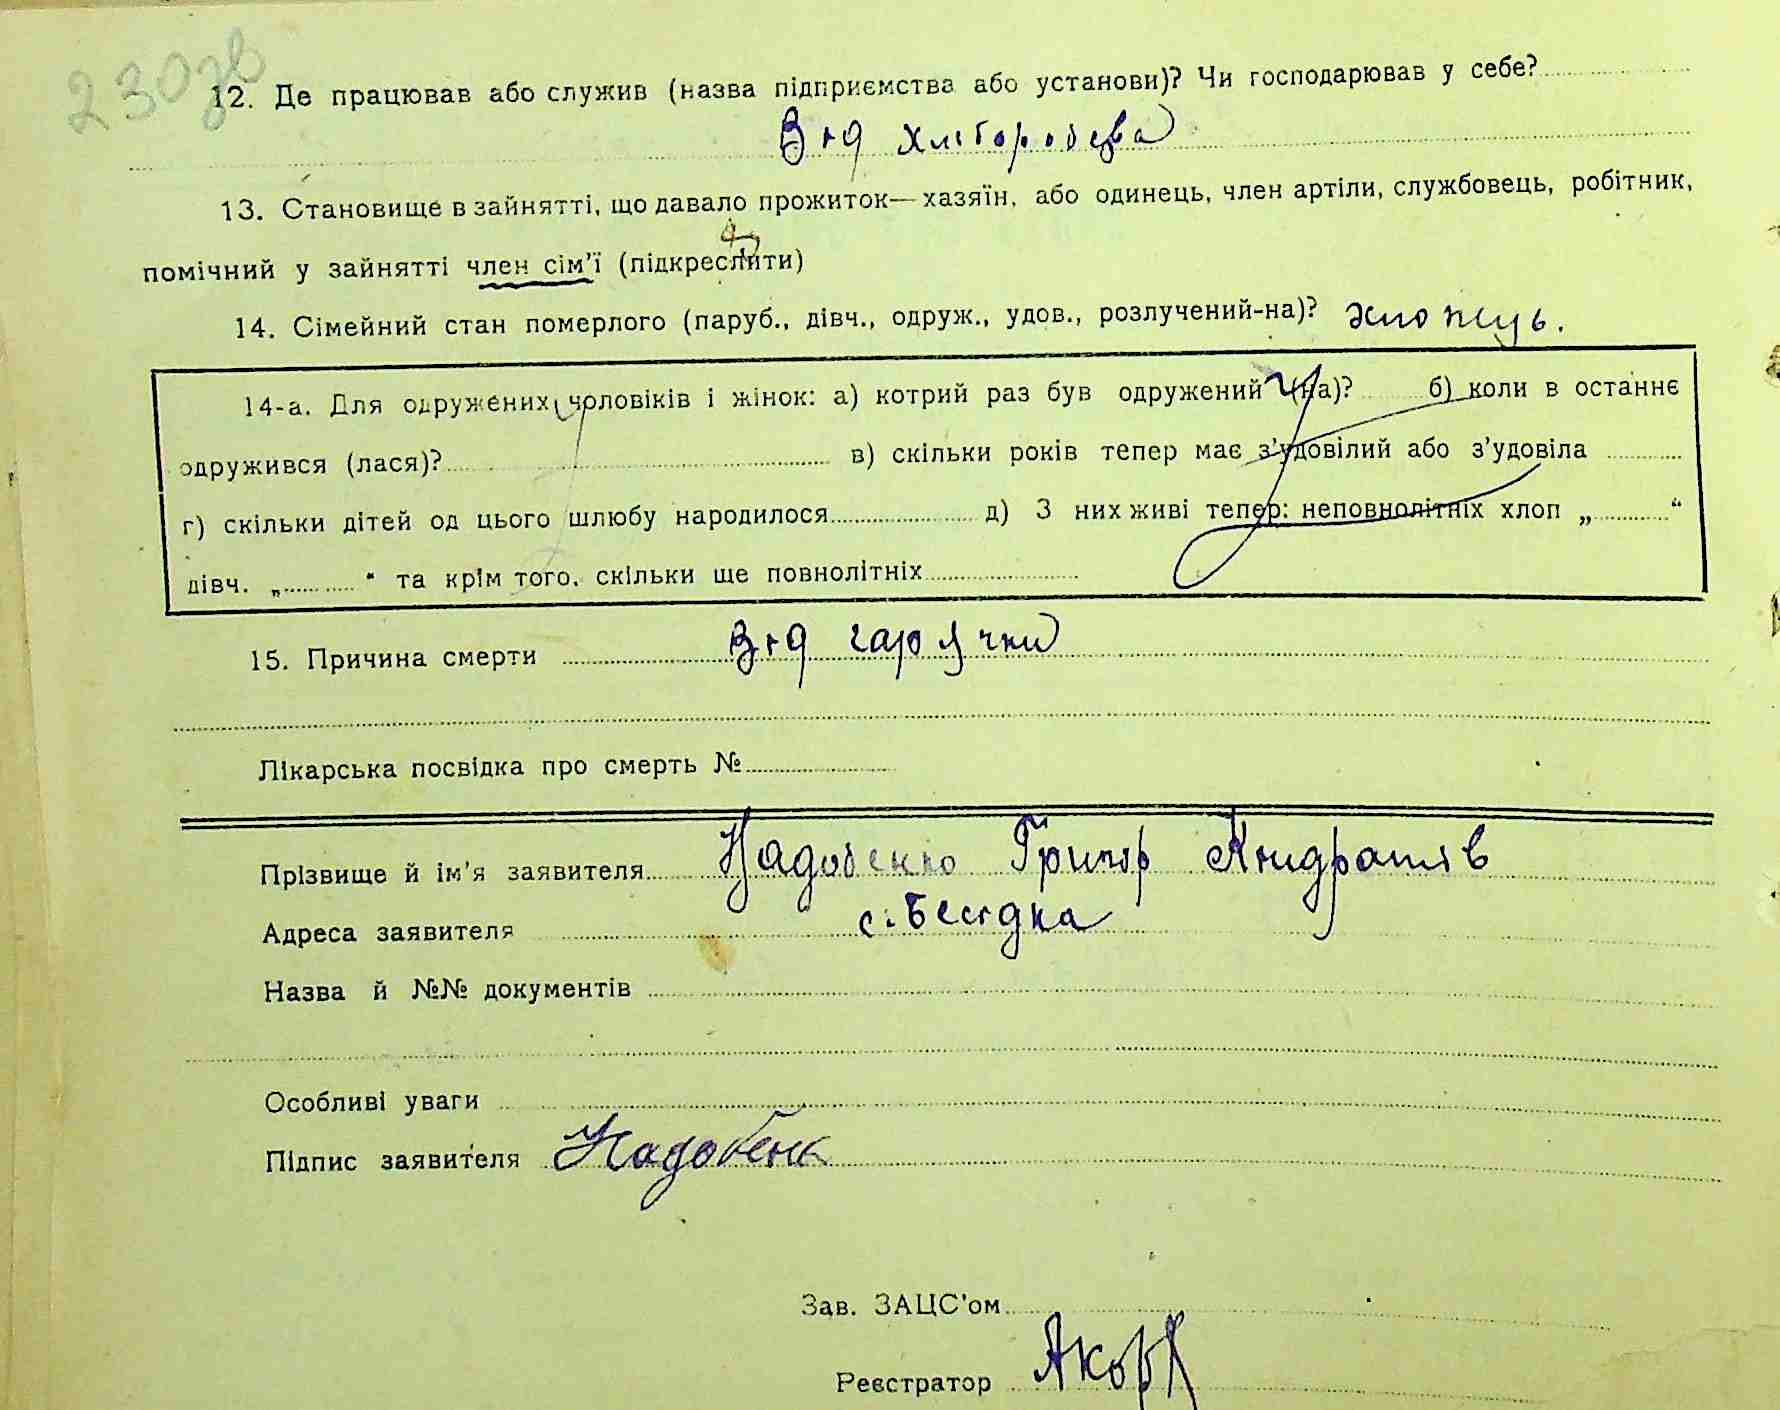 230зв
12. Де працював або служив (назва підприємства або установи)? Чи господарював у себе?
Від хліборобства
13. Становище в зайнятті, що давало прожиток—хазяїн, або одинець, член артіли, службовець, робітник,
помічний у зайнятті член сім'ї (підкреслити)
14. Сімейний стан померлого (паруб., дівч., одруж., удов., розлучений-на)?
14-а. Для одружених чоловіків і жінок: а) котрий раз був одружений (на)? б) коли в останнє
одружився (лася)? в) скільки років тепер має з'удовілий або з'удовіла
г) скільки дітей од цього шлюбу народилося д) З них живі тепер: неповнолітніх хлоп „ “
дівч. „ “ та крім того, скільки ще повнолітніх
15. Причина смерти Від гарячки
Лікарська посвідка про смерть №
Прізвище й ім'я заявителя Надобенко Григор Кндратів
Адреса заявителя с. Бесідка
Назва й №№ документів
Особливі уваги
Підпис заявителя Надобенк
Зав. ЗАЦС'ом
Реєстратор